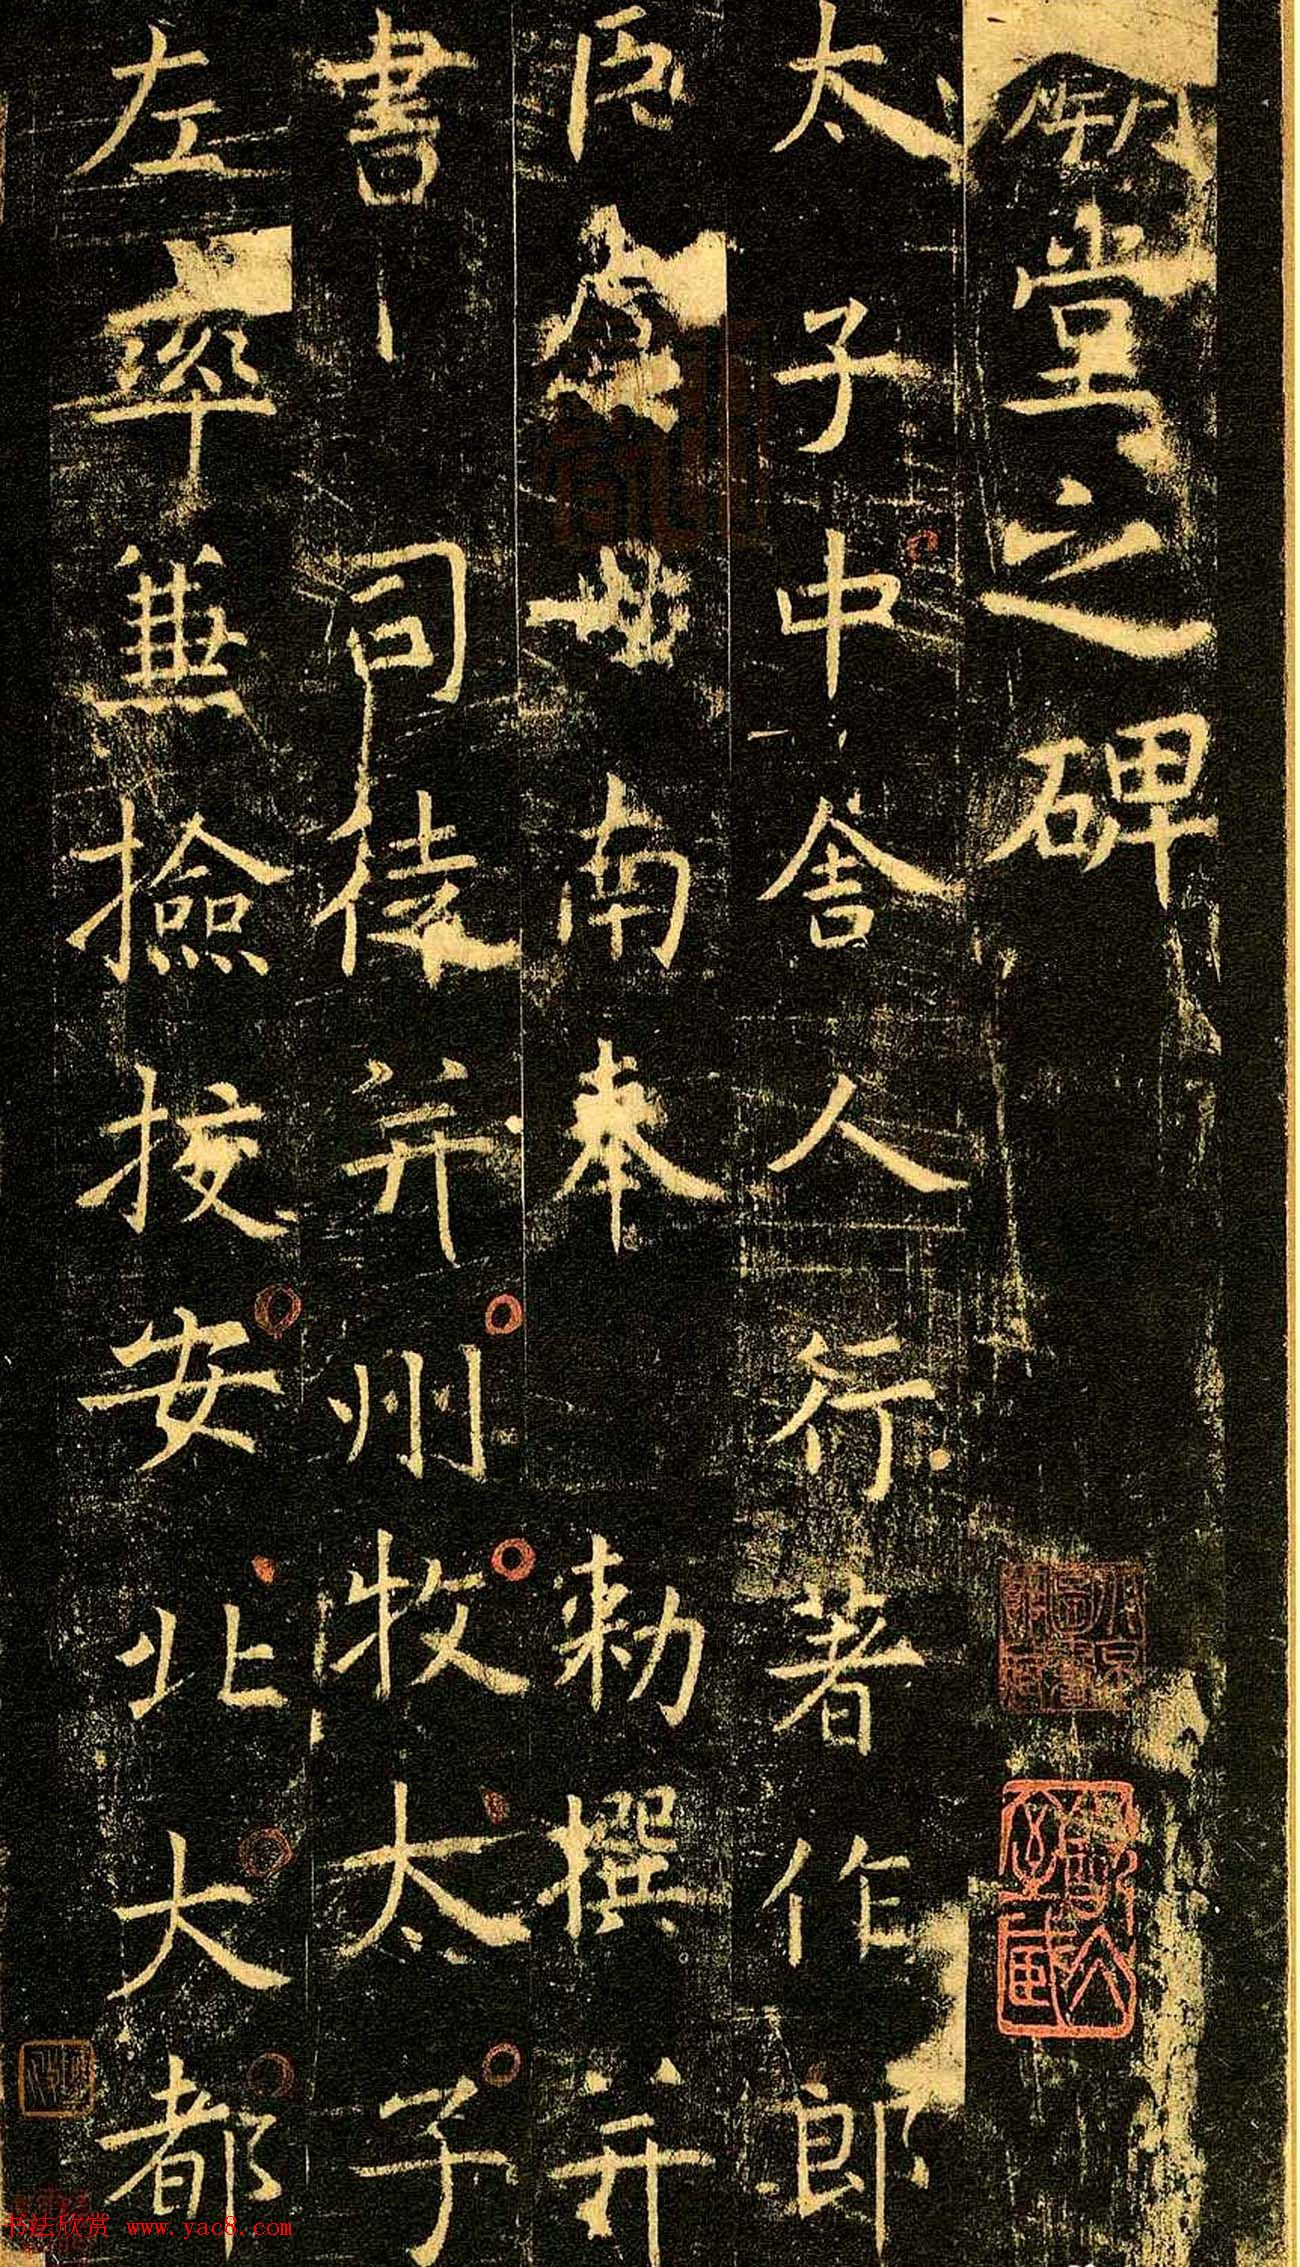 堂之碑
太子中舍人行著作郎
臣虞世南奉 勅撰并
書 司徒并州牧太子
左率兼撿挍安北大都
书法欣赏 www.yac8.com